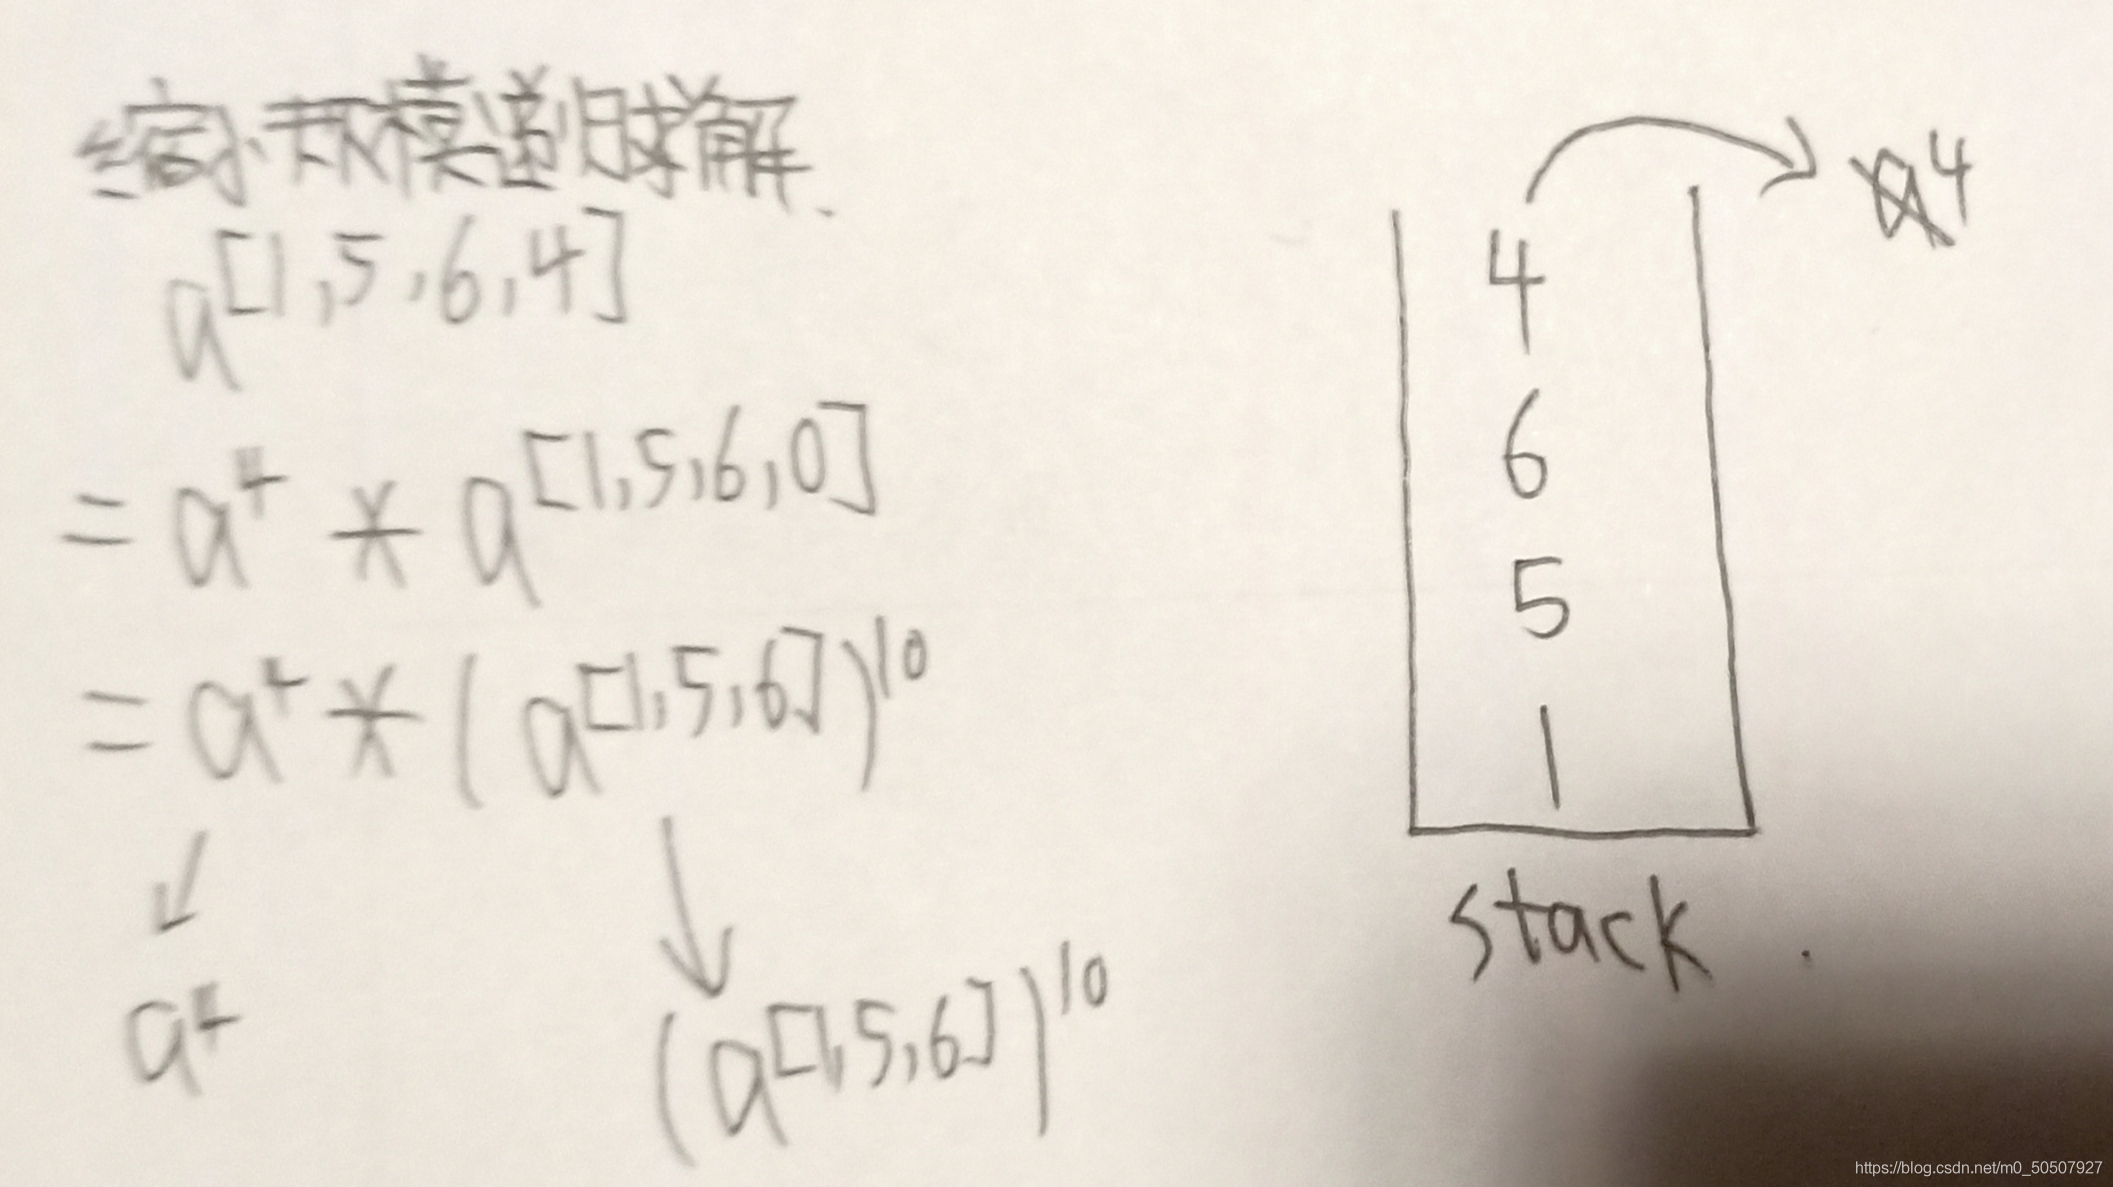 缩小规模递归求解.
a^[1,5,6,4]
= a^4 * a^[1,5,6,0]
= a^4 * (a^[1,5,6])^10
a^4
(a^[1,5,6])^10
4
4
6
5
1
stack
https://blog.csdn.net/m0_50507927